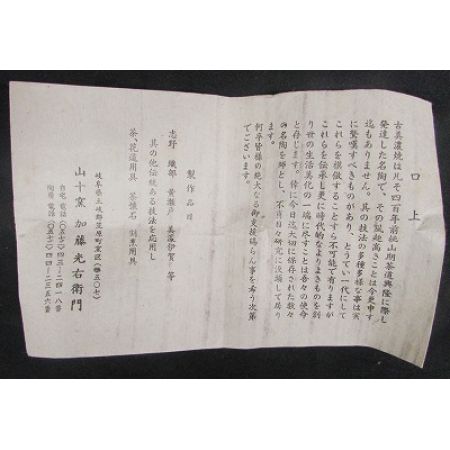 口上
古美濃焼は凡そ四百年前桃山期茶道興隆に際し
発達した名陶で、その
迄もありません。其の技法の多種多様な事は実
に驚嘆すべきものがあり、とうてい一代にして
これらを模倣することすら不可能で有りますが
これらを伝承し更に時代的なよりよきものを創
り世の生活美化の一端に尽すことは吾々の使命
と存じます。幸に今日迄大切に保存された数々
の名陶を師とし、不肖日々研究に没頭して居り
ます。
何卒皆様の絶大なる御支援賜らん事を希う次第
でございます。
製作品目
志野 織部 黄瀬戸 美濃伊賀 等
其の他伝統ある技法を応用し
茶、花道用具 茶懐石 割烹用具
岐阜県土岐郡笠原町
山十窯 加藤光右衛門
自宅 電話(〇五七二)四三―二四一八番